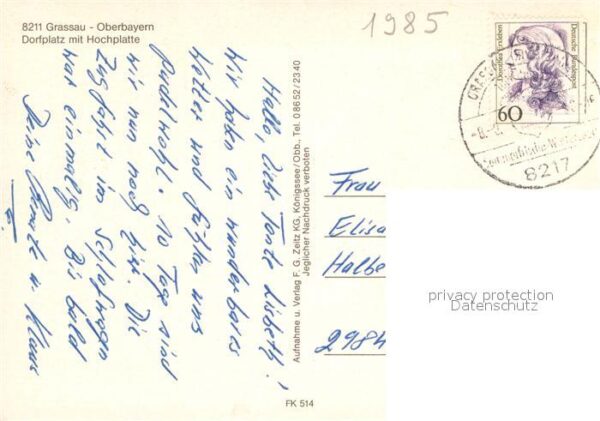 8211 Grassau - Oberbayern
Dorfplatz mit Hochplatte
1985
Hallo, liebe Tante Lisbeth!
Wir haben ein wunderbares
Wetter und fühlen uns
pudelwohl. 10 Tage sind
wir nun noch hier. Die
Zugfahrt im Schlafwagen
war einmalig. Bis bald
Deine u. Klaus
Aufnahme u. Verlag F. G. Zeitz KG, Königssee/Obb., Tel. 0 86 52 / 23 40
Jeglicher Nachdruck verboten
FK 514
Dorothea Erxleben
Deutsche Bundespost
60
GRASSAU
8217
Frau
Elisa
Halbe
2984
privacy protection
Datenschutz